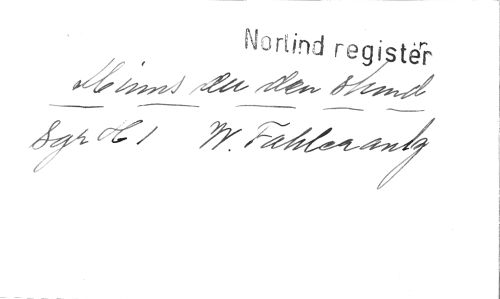 Norlind register
Minns du den stund
Sgr H 1 W. Fahlcrantz